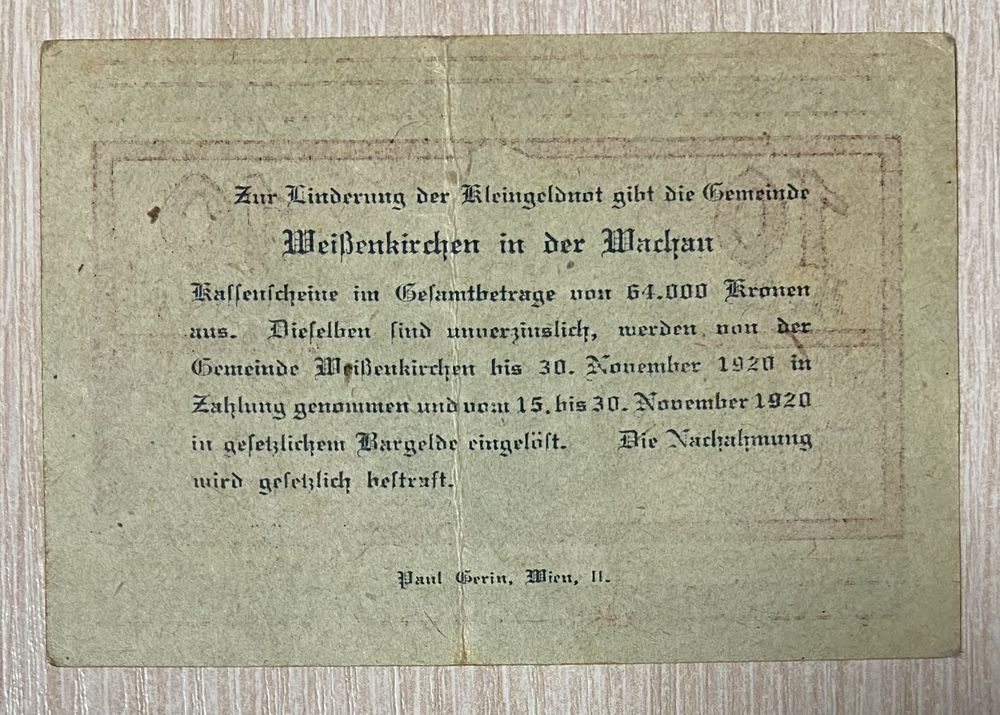 Zur Linderung der Kleingeldnot gibt die Gemeinde
Weißenkirchen in der Wachau
Kassenscheine im Gesamtbetrage von 64.000 Kronen
aus. Dieselben sind unverzinslich, werden von der
Gemeinde Weißenkirchen bis 30. November 1920 in
Zahlung genommen und vom 15. bis 30. November 1920
in gesetzlichem Bargelde eingelöst. Die Nachahmung
wird gesetzlich bestraft.
Paul Gerin, Wien, II.